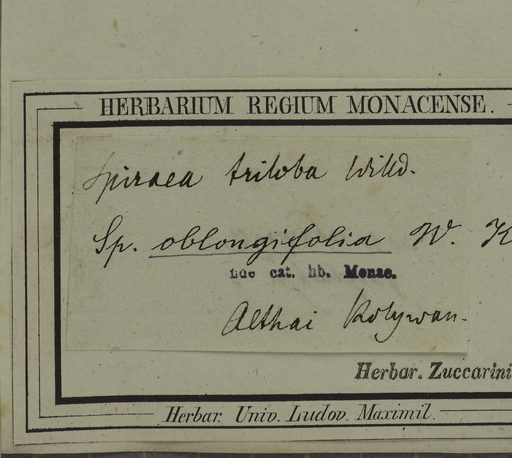 HERBARIUM REGIUM MONACENSE.
Spiraea triloba Willd.
Sp. oblongifolia W. K
fide cat. hb. Monac.
Althai Kolywan.
Herbar. Zuccarini
Herbar. Univ. Ludov. Maximil.